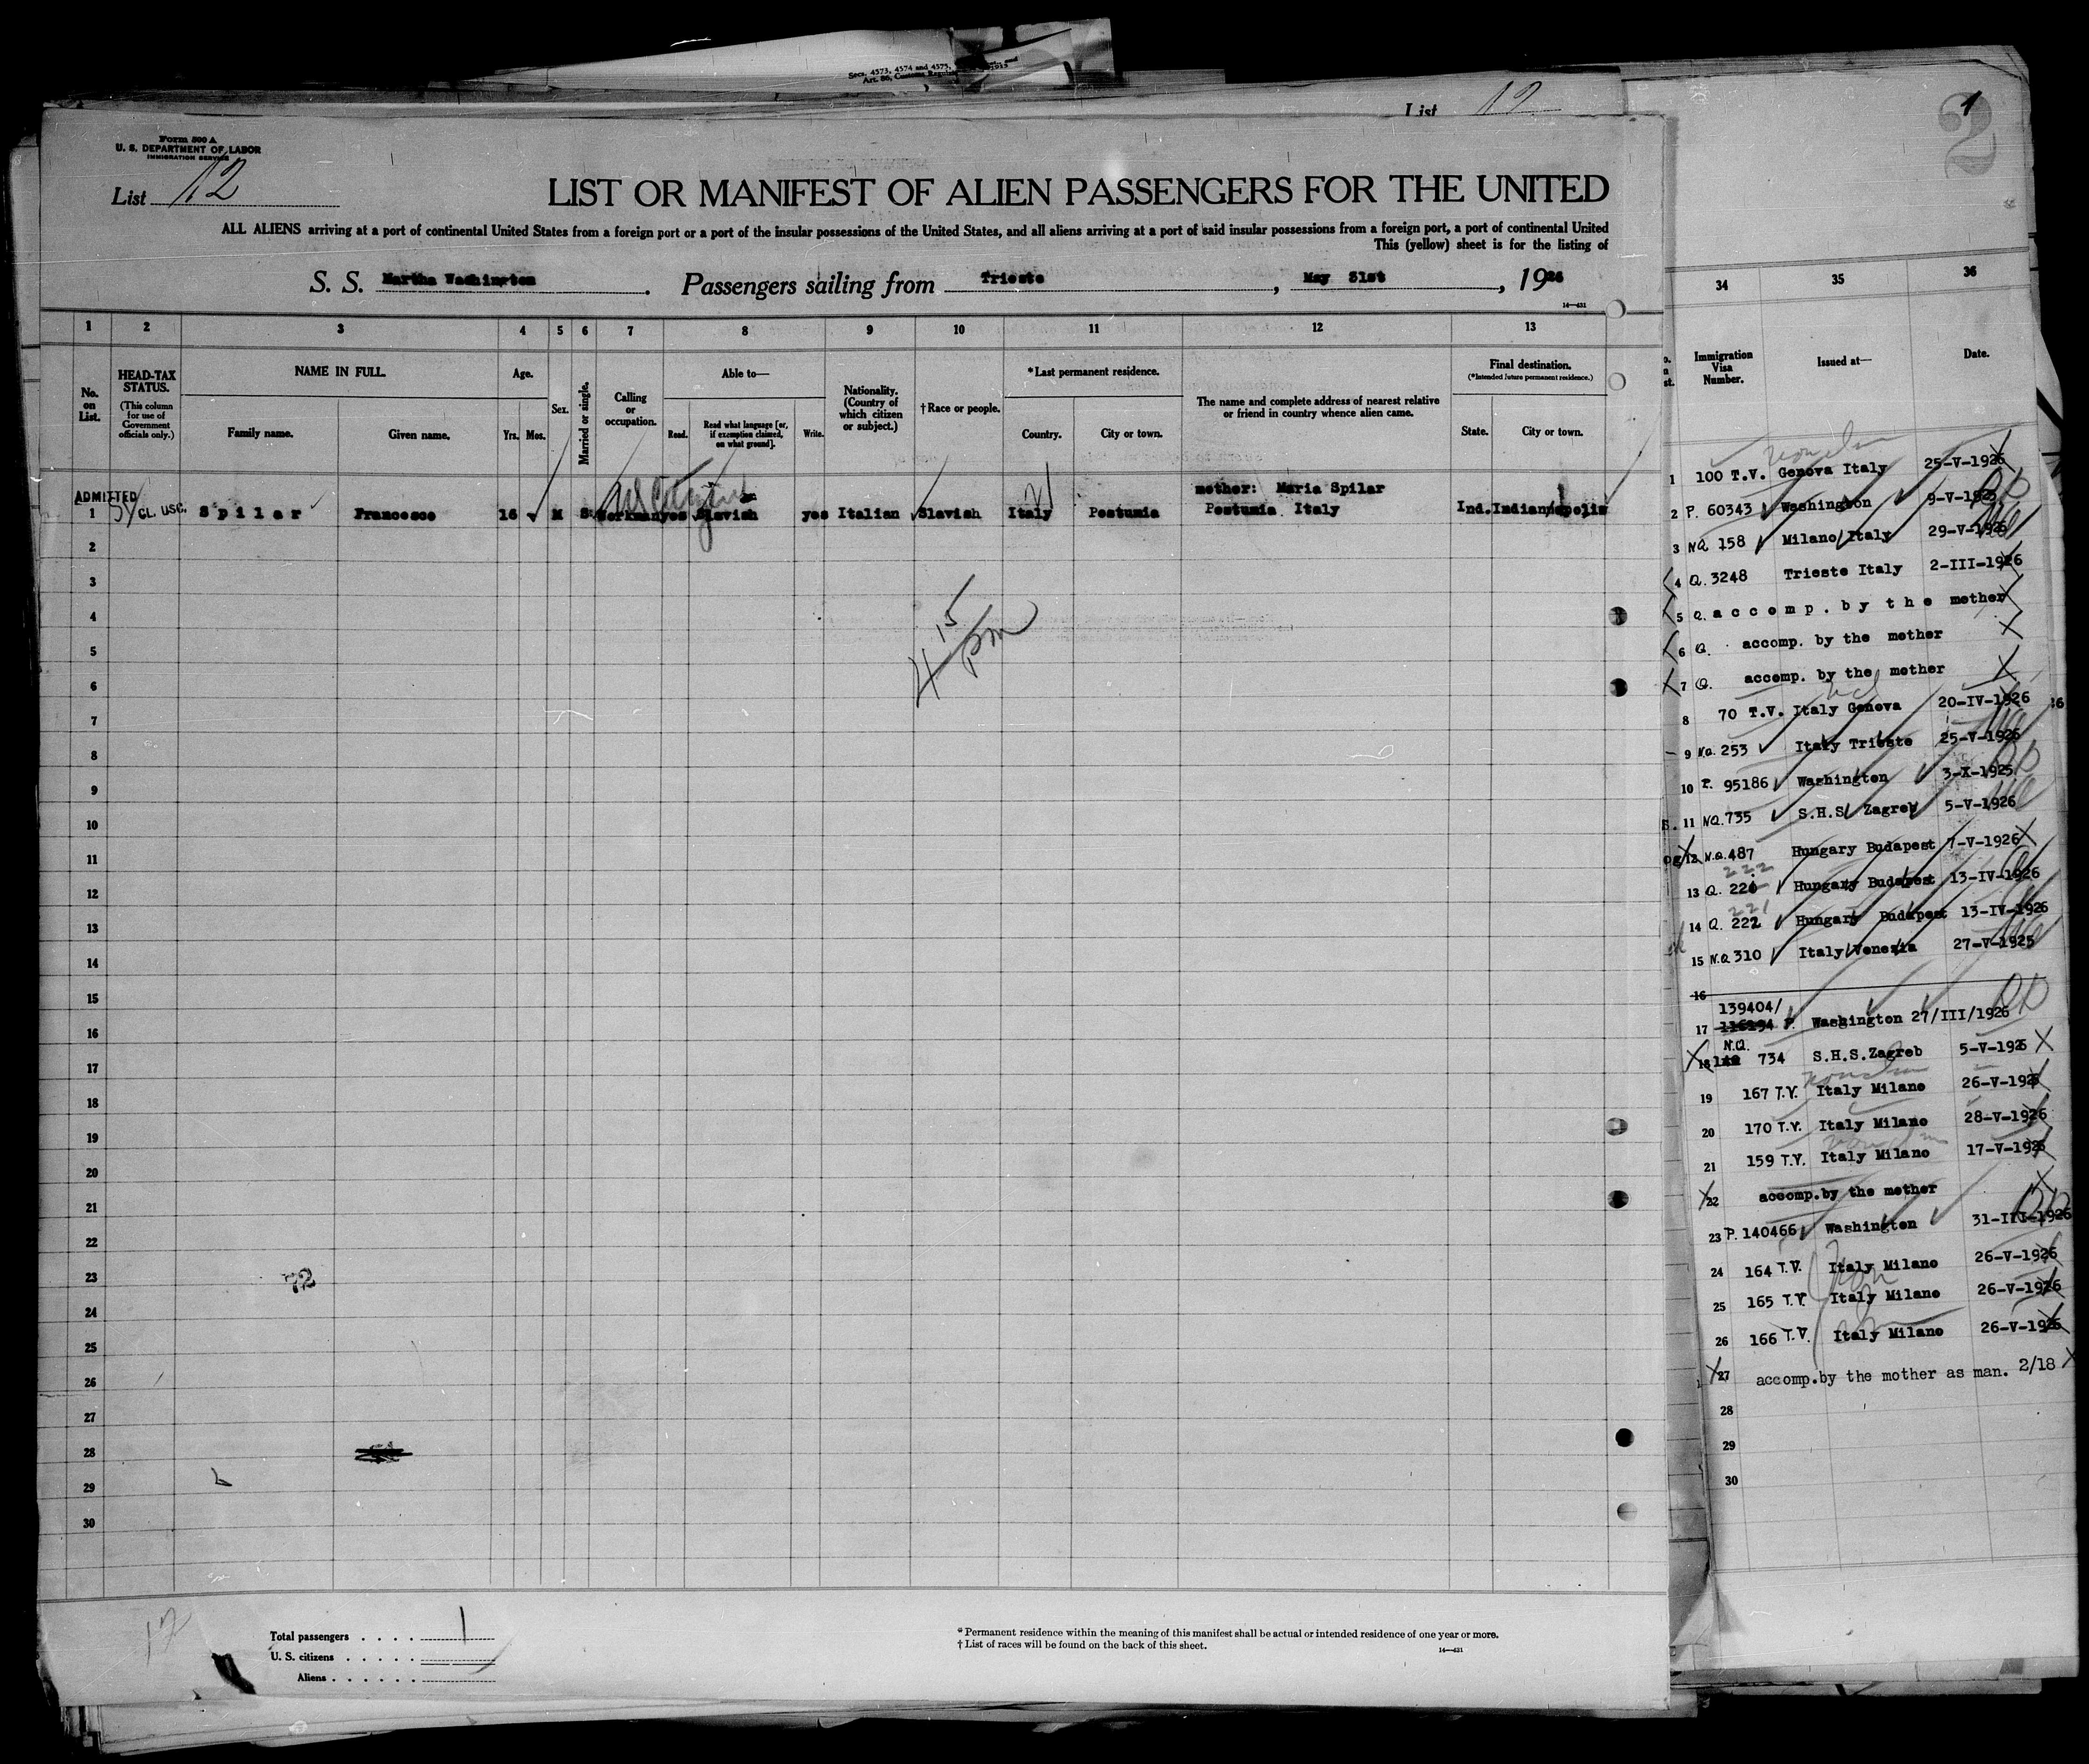 Secs. 4573, 4574 and 4575,
Art. 86, Customs
List 12
Form 500 A
U. S. DEPARTMENT OF LABOR
IMMIGRATION SERVICE
List 12
LIST OR MANIFEST OF ALIEN PASSENGERS FOR THE UNITED
ALL ALIENS arriving at a port of continental United States from a foreign port or a port of the insular possessions of the United States, and all aliens arriving at a port of said insular possessions from a foreign port, a port of continental United
This (yellow) sheet is for the listing of
S. S. Martha Washington. Passengers sailing from Trieste, May 31st, 1926
14—431
1 2 3 4 5 6 7 8 9 10 11 12 13
No. on List.
HEAD-TAX STATUS.
(This column for use of Government officials only.)
NAME IN FULL.
Family name. Given name.
Age.
Yrs. Mos.
Sex.
Married or single.
Calling or occupation.
Able to—
Read. Read what language [or, if exemption claimed, on what ground]. Write.
Nationality. (Country of which citizen or subject.)
†Race or people.
*Last permanent residence.
Country. City or town.
The name and complete address of nearest relative or friend in country whence alien came.
Final destination.
(*Intended future permanent residence.)
State. City or town.
US Citizen
mother: Maria Spilar
ADMITTED
1 CL. USC. Spilar Francesco 16 M S workman yes Slavish yes Italian Slavish Italy Postumia Postumia Italy Ind. Indianapolis
2
3
4
4 15 pm
5
6
7
8
9
10
11
12
13
14
15
16
17
18
19
20
21
22
23
72
24
25
26
27
28
29
30
12
Total passengers . . . . 1
U. S. citizens . . . . .
Aliens . . . . . .
* Permanent residence within the meaning of this manifest shall be actual or intended residence of one year or more.
† List of races will be found on the back of this sheet.
14—431
2
1
34 35 36
Immigration Visa Number.
Issued at—
Date.
1 100 T.V. Genova Italy 25-V-1926
2 P. 60343 Washington 9-V-1925
3 NQ 158 Milano Italy 29-V-1926
4 Q. 3248 Trieste Italy 2-III-1926
5 Q. accomp. by the mother
6 Q. accomp. by the mother
7 Q. accomp. by the mother
8 70 T.V. Italy Genova 20-IV-1926
9 N.Q. 253 Italy Trieste 25-V-1926
10 P. 95186 Washington 3-X-1925
11 NQ. 735 S.H.S. Zagreb 5-V-1926
12 N.Q. 487 Hungary Budapest 7-V-1926
222
13 Q. 221 Hungary Budapest 13-IV-1926
221
14 Q. 222 Hungary Budapest 13-IV-1926
15 N.Q 310 Italy Venezia 27-V-1925
16
139404/
17 116194 P. Washington 27/III/1926
N.Q.
18 734 S.H.S. Zagreb 5-V-1926
19 167 T.V. Italy Milano 26-V-1926
20 170 T.V. Italy Milano 28-V-1926
21 159 T.V. Italy Milano 17-V-1926
22 accomp.by the mother
23 P. 140466 Washington 31-III-1926
24 164 T.V. Italy Milano 26-V-1926
25 165 T.V. Italy Milano 26-V-1926
26 166 T.V. Italy Milano 26-V-1926
27 accomp.by the mother as man. 2/18
28
29
30